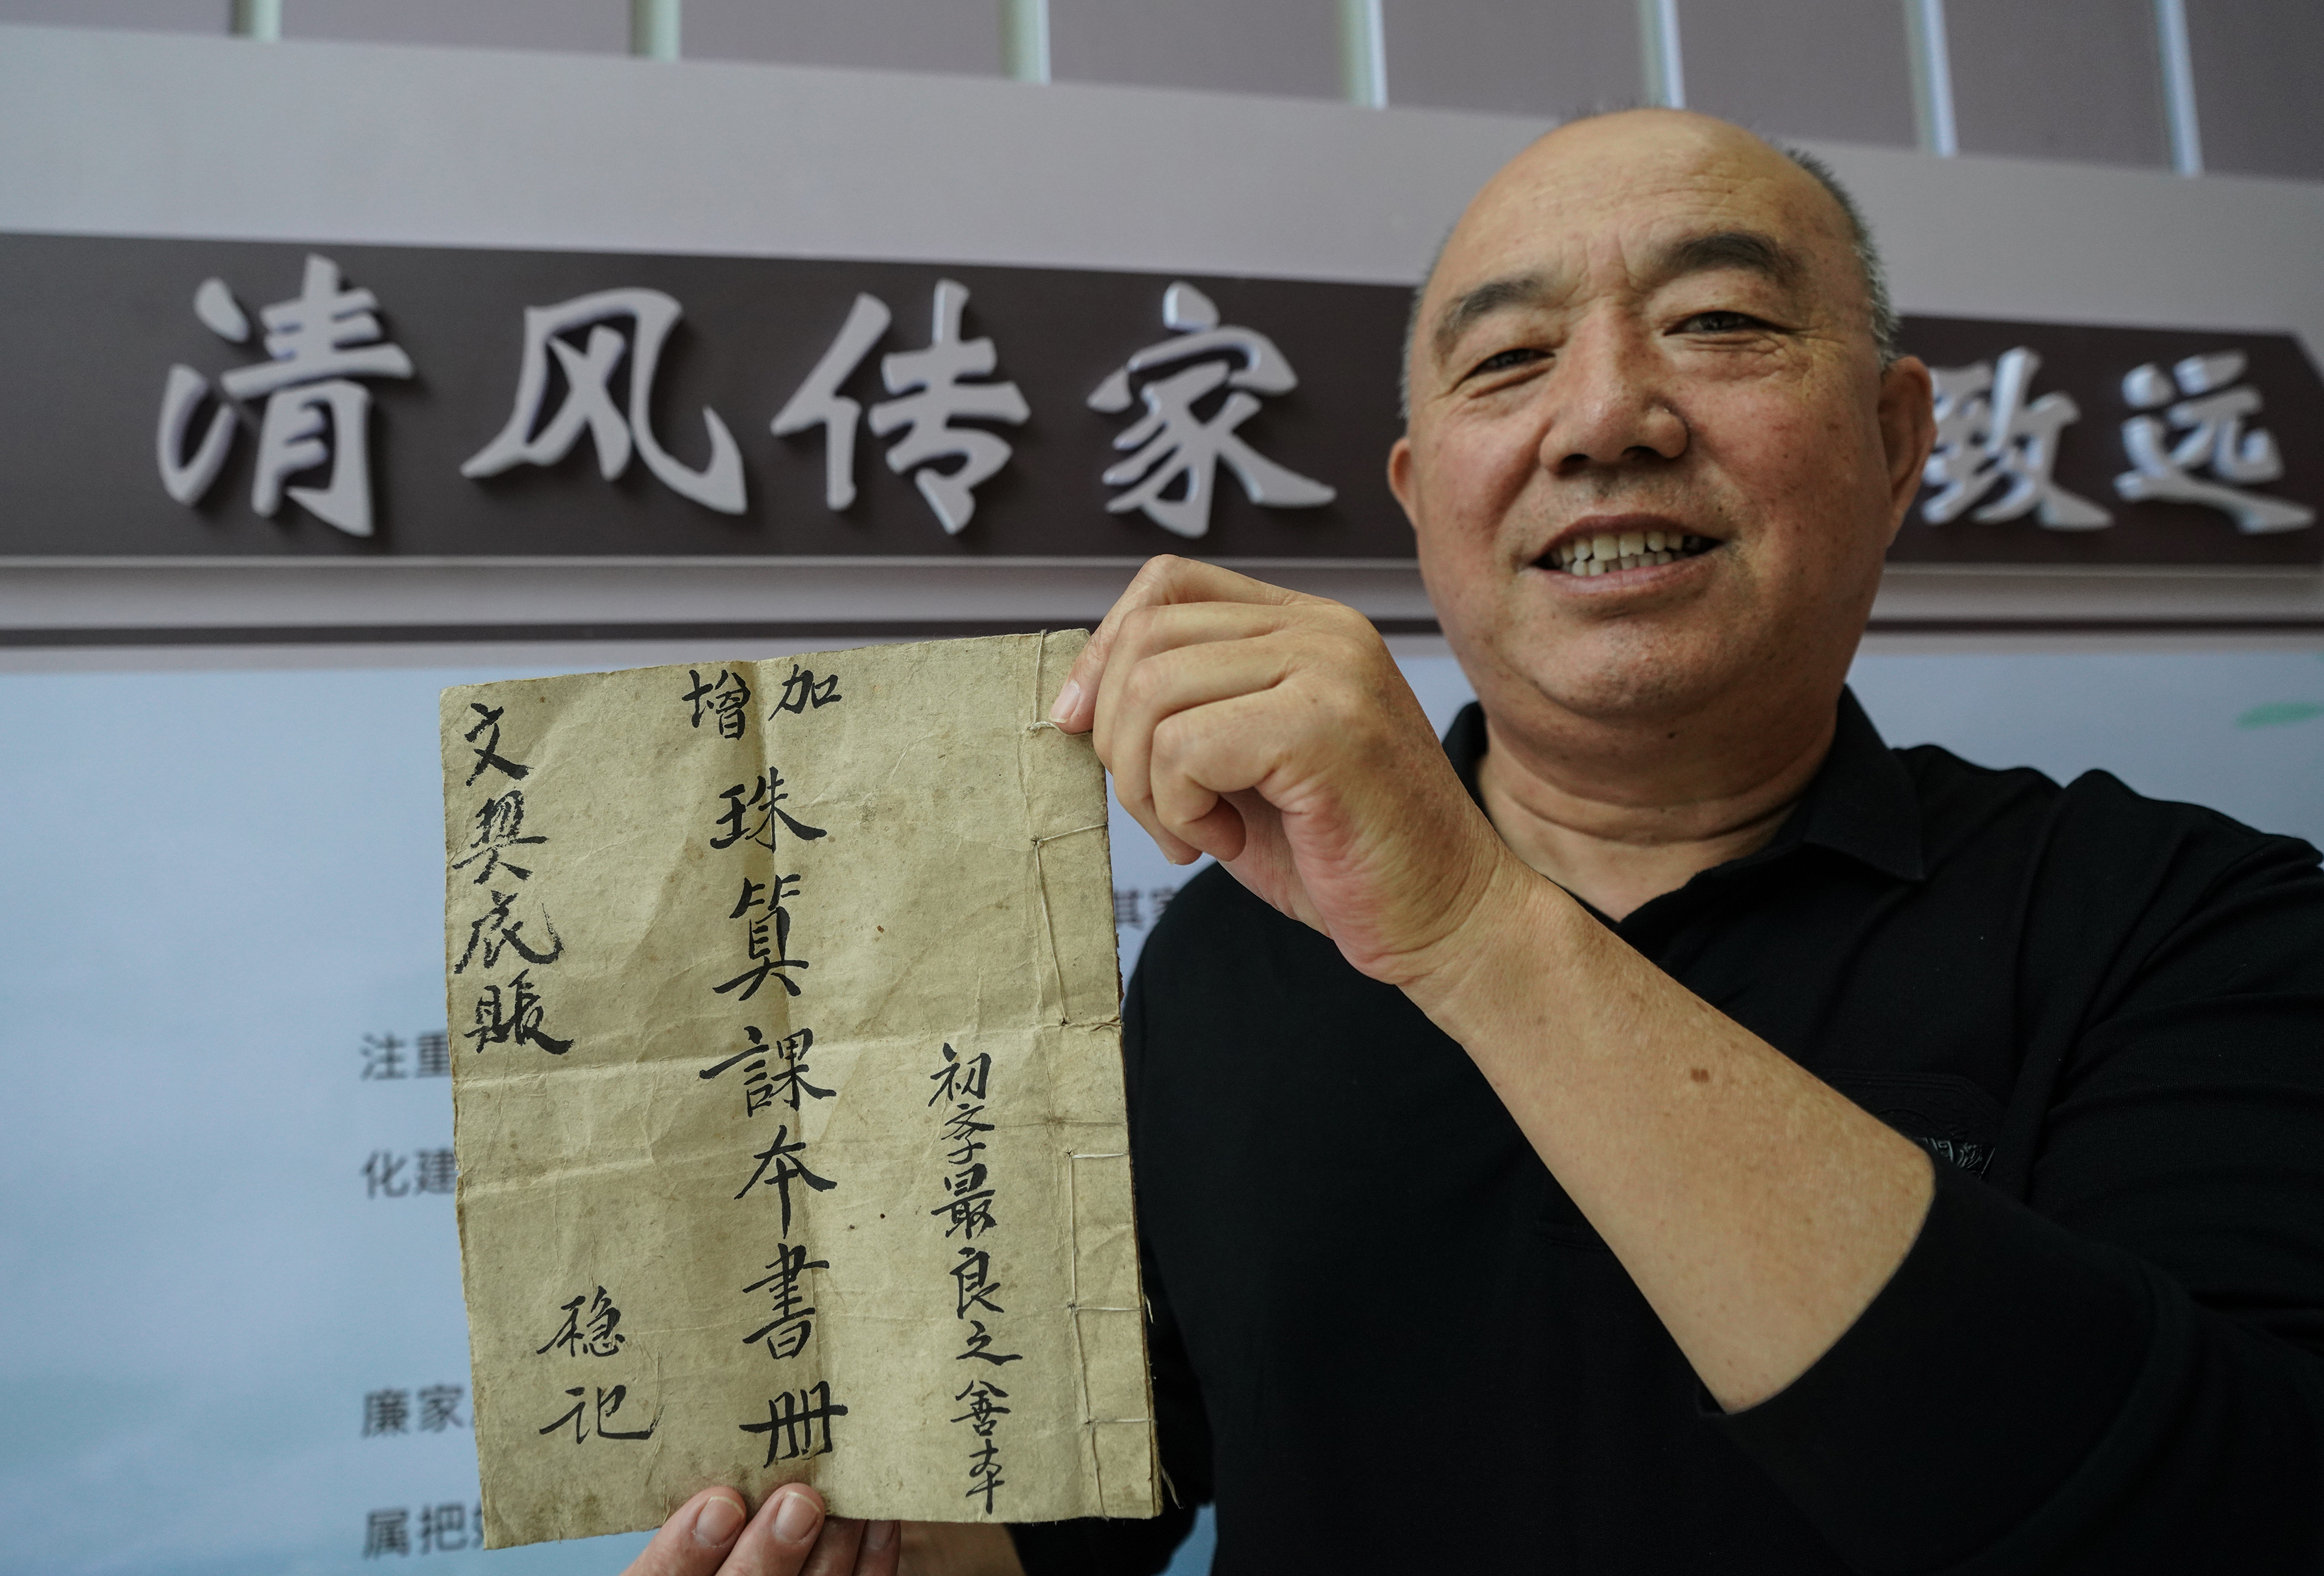 清风传家 致远
加增
珠算課本書册
初学最良之善本
文契底賬
稳记
其家
注重
化建
廉家
属把